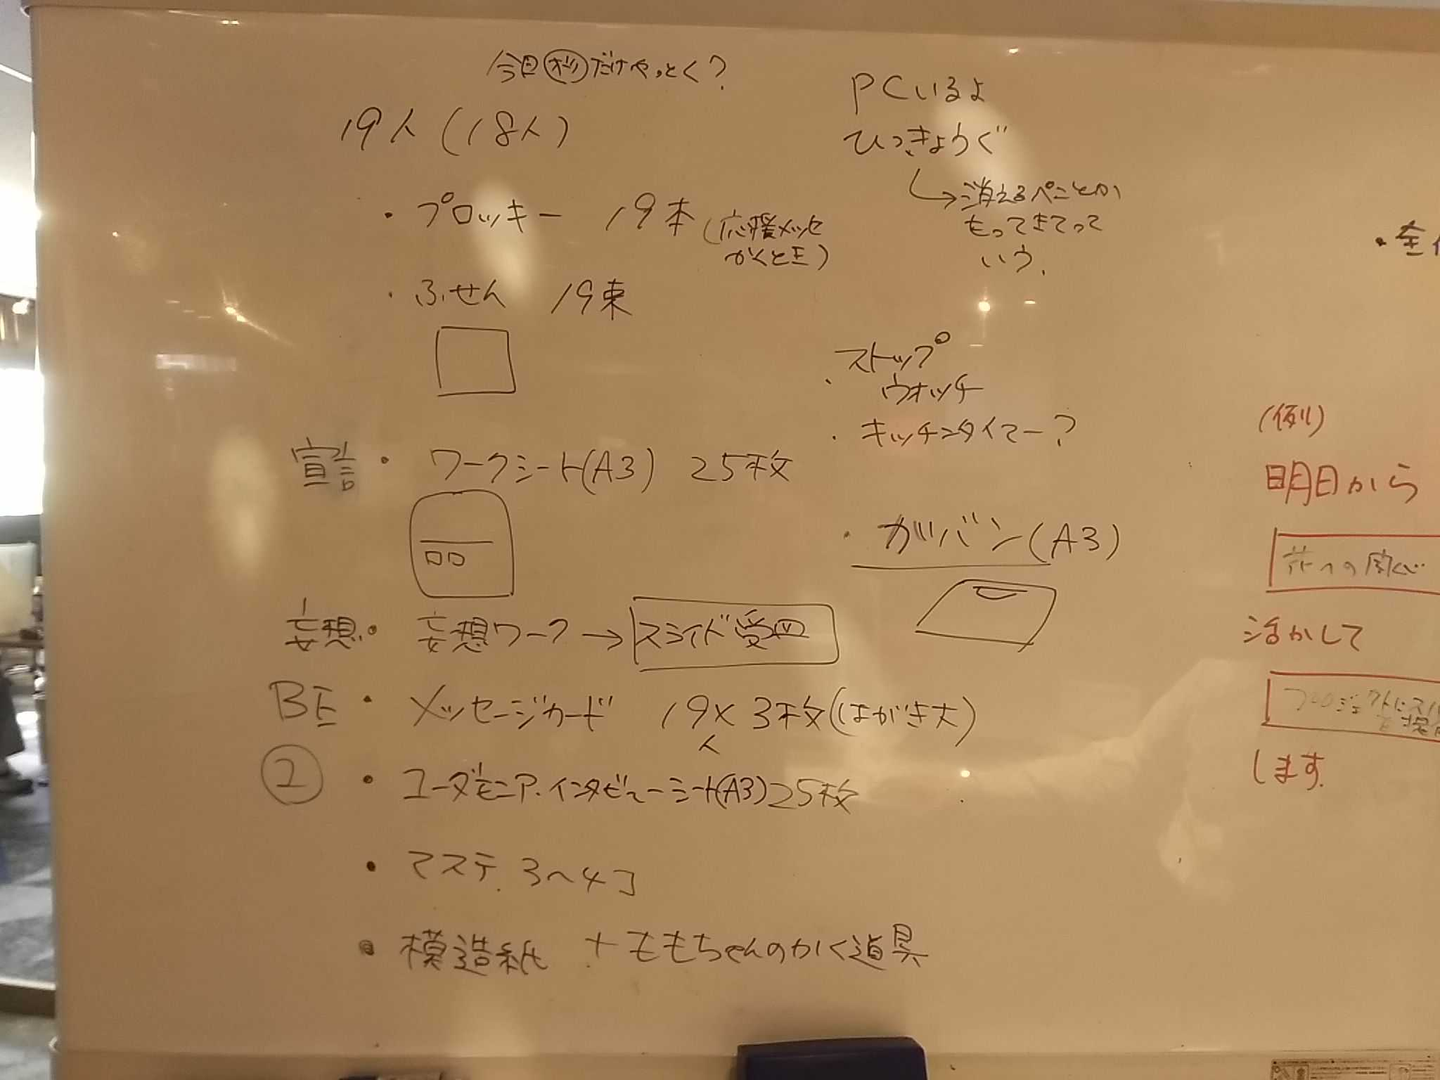 今日 だけやっとく?
19人(18人)
・プロッキー 19本(応援メッセ
かくとき)
・ふせん 19束
宣言・ワークシート(A3) 25枚
妄想・妄想ワーク→スライド受皿
BE・メッセージカード 19×3枚(はがき大)
人
②・ユーダモニア・インタビューシート(A3)25枚
・マステ 3〜4コ
・模造紙 + ももちゃんのかく道具
PCいるよ
ひっきょうぐ
↳消えるペンとか
もってきてって
いう.
・ストップ
ウォッチ
・キッチンタイマー?
・ガバン(A3)
・全
(例)
明日から
への関心
活かして
プロジェクトに
します.